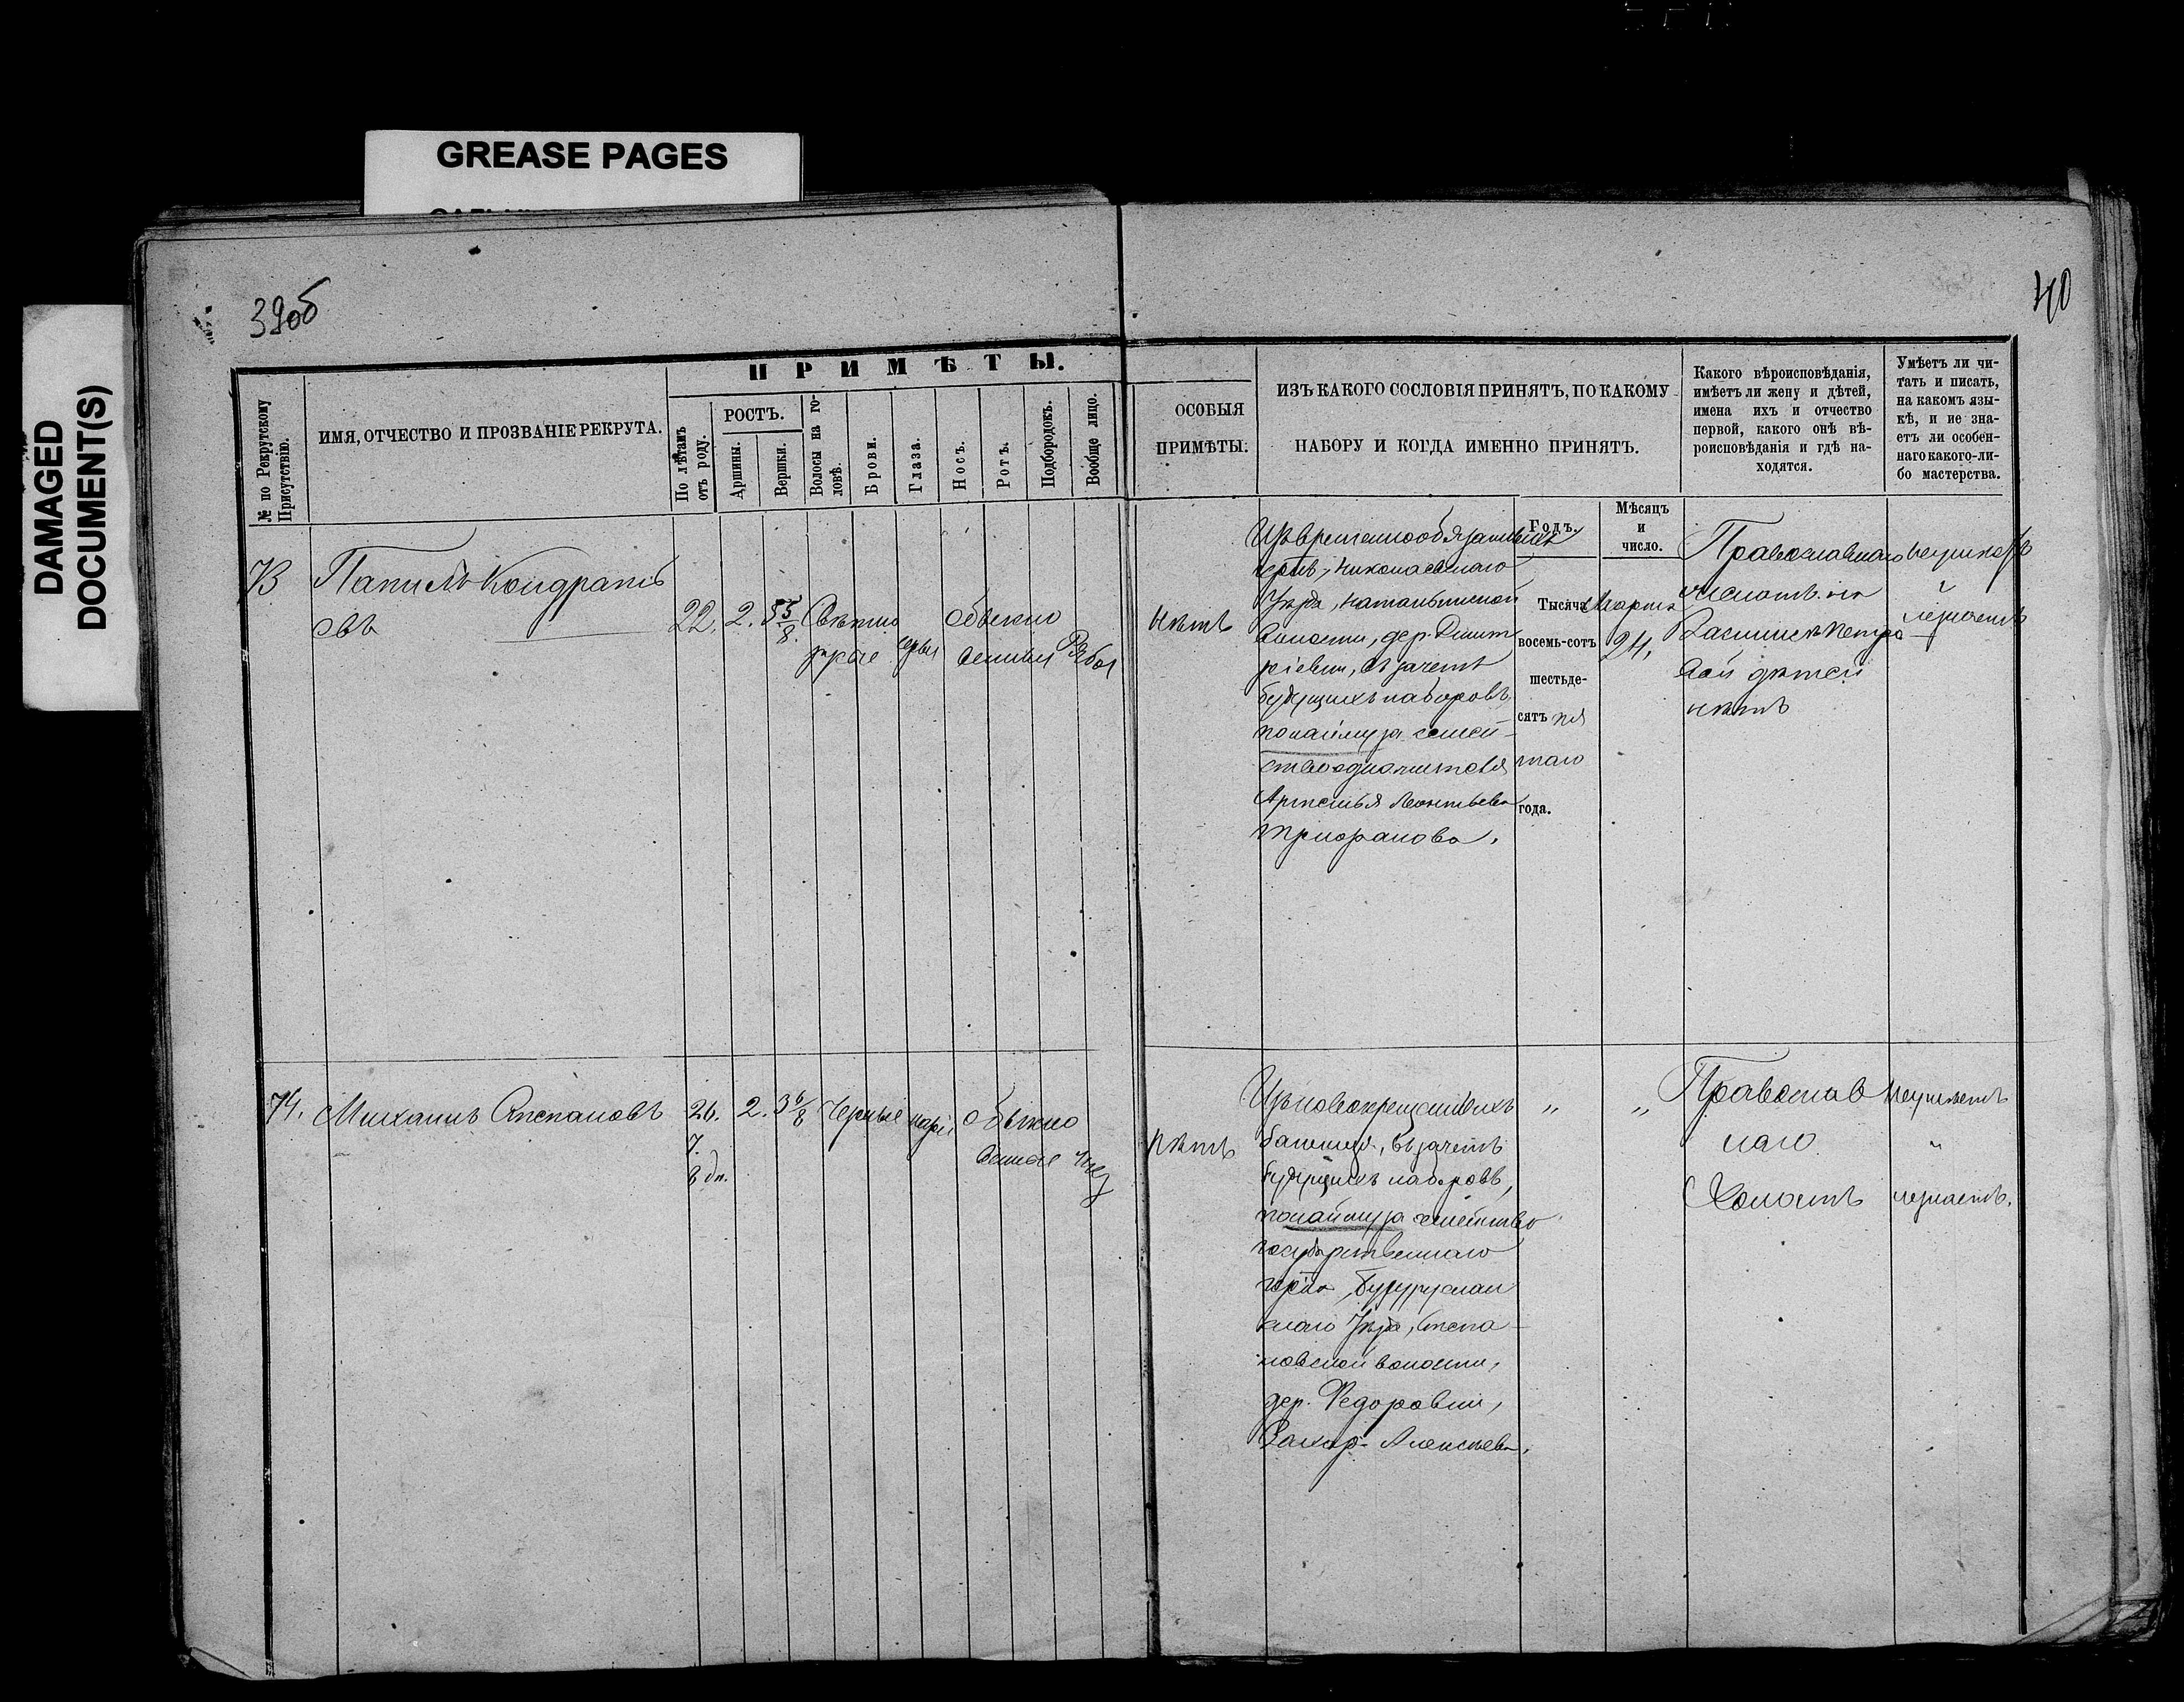 GREASE PAGES
DAMAGED
DOCUMENT(S)
39об
40
ПРИМѢТЫ.
№ по Рекрутскому
Присутствію.
ИМЯ, ОТЧЕСТВО И ПРОЗВАНІЕ РЕКРУТА.
По лѣтамъ
отъ роду.
РОСТЪ.
Аршины.
Вершки.
Волосы на го-
ловѣ.
Брови.
Глаза.
Носъ.
Ротъ.
Подбородокъ.
Вообще лицо.
ОСОБЫЯ
ПРИМѢТЫ.
ИЗЪ КАКОГО СОСЛОВІЯ ПРИНЯТЪ, ПО КАКОМУ
НАБОРУ И КОГДА ИМЕННО ПРИНЯТЪ.
Какого вѣроисповѣданія,
имѣетъ ли жену и дѣтей,
имена ихъ и отчество
первой, какого онѣ вѣ-
роисповѣданія и гдѣ на-
ходятся.
Умѣетъ ли чи-
тать и писать,
на какомъ язы-
кѣ, и не зна-
етъ ли особен-
наго какого-ли-
бо мастерства.
73
Кондрать
евъ
22.
2.
5 5/8.
Свѣтло
русые
сѣрые
обыкно
венныя
Рябое
нѣтъ
Изъ временнообязанныхъ
крест., Николаевскаго
Уѣзда,
Волости, дер. Дмит
ріевки, въ зачетъ
будущихъ наборовъ,
по найму за семей-
ство
Артемья Леонтьева
Годъ.
Тысяча
восемь-сотъ
шестьде-
сятъ пя
таго
года.
Мѣсяцъ
и
число.
Марта
24.
Православнаго
женатъ на
Петро
вой дѣтей
нѣтъ
неумѣетъ
"
незнаетъ
74.
Михаилъ Степановъ
26.
7.
8 дн.
2.
3 6/8
Черные
каріе
обыкно
венное
Чис
нѣтъ
Изъ новокрещенныхъ
въ зачетъ
будущихъ наборовъ,
по найму за семейство
государственнаго
крест., Бугуруслан
скаго Уѣзда, Степа-
новской волости,
дер. Федоровки,
Захара Алексѣева.
"
"
Православ
наго
Холостъ
Неумѣетъ
"
незнаетъ.